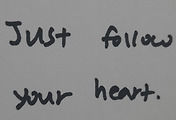 Just follow
your heart.